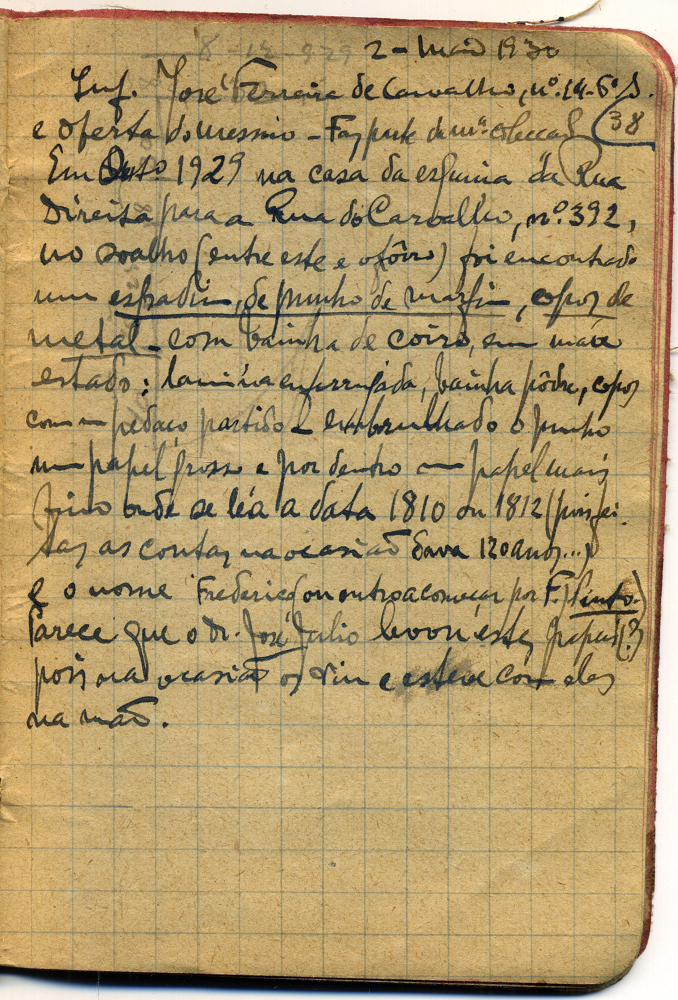 2 - Maio 1930
Inf. José Ferreira de Carvalho, nº. 14 - 6º A.
e oferta do mesmo - Faz parte da mª. colecção
38
Em Outº 1929 na casa da esquina da Rua
Direita para a Rua do Carvalho, nº. 392,
no soalho (entre este e o fôrro) foi encontrado
um espadim, de punho de marfim, copos de
metal - com bainha de coiro, em mau
estado: lamina enferrujada, bainha pôdre, copos
com um pedaço partido - embrulhado o punho
num papel grosso e por dentro um papel mais
fino onde se lêa a data 1810 ou 1812 (pois fei-
tas as contas na ocasião dava 120 anos...)
e o nome Frederico (ou outro a começar por F.) Pinto.)
Parece que o Dr. José Julio levou estes papeis (?)
pois na ocasião os viu e esteve com eles
na mão.